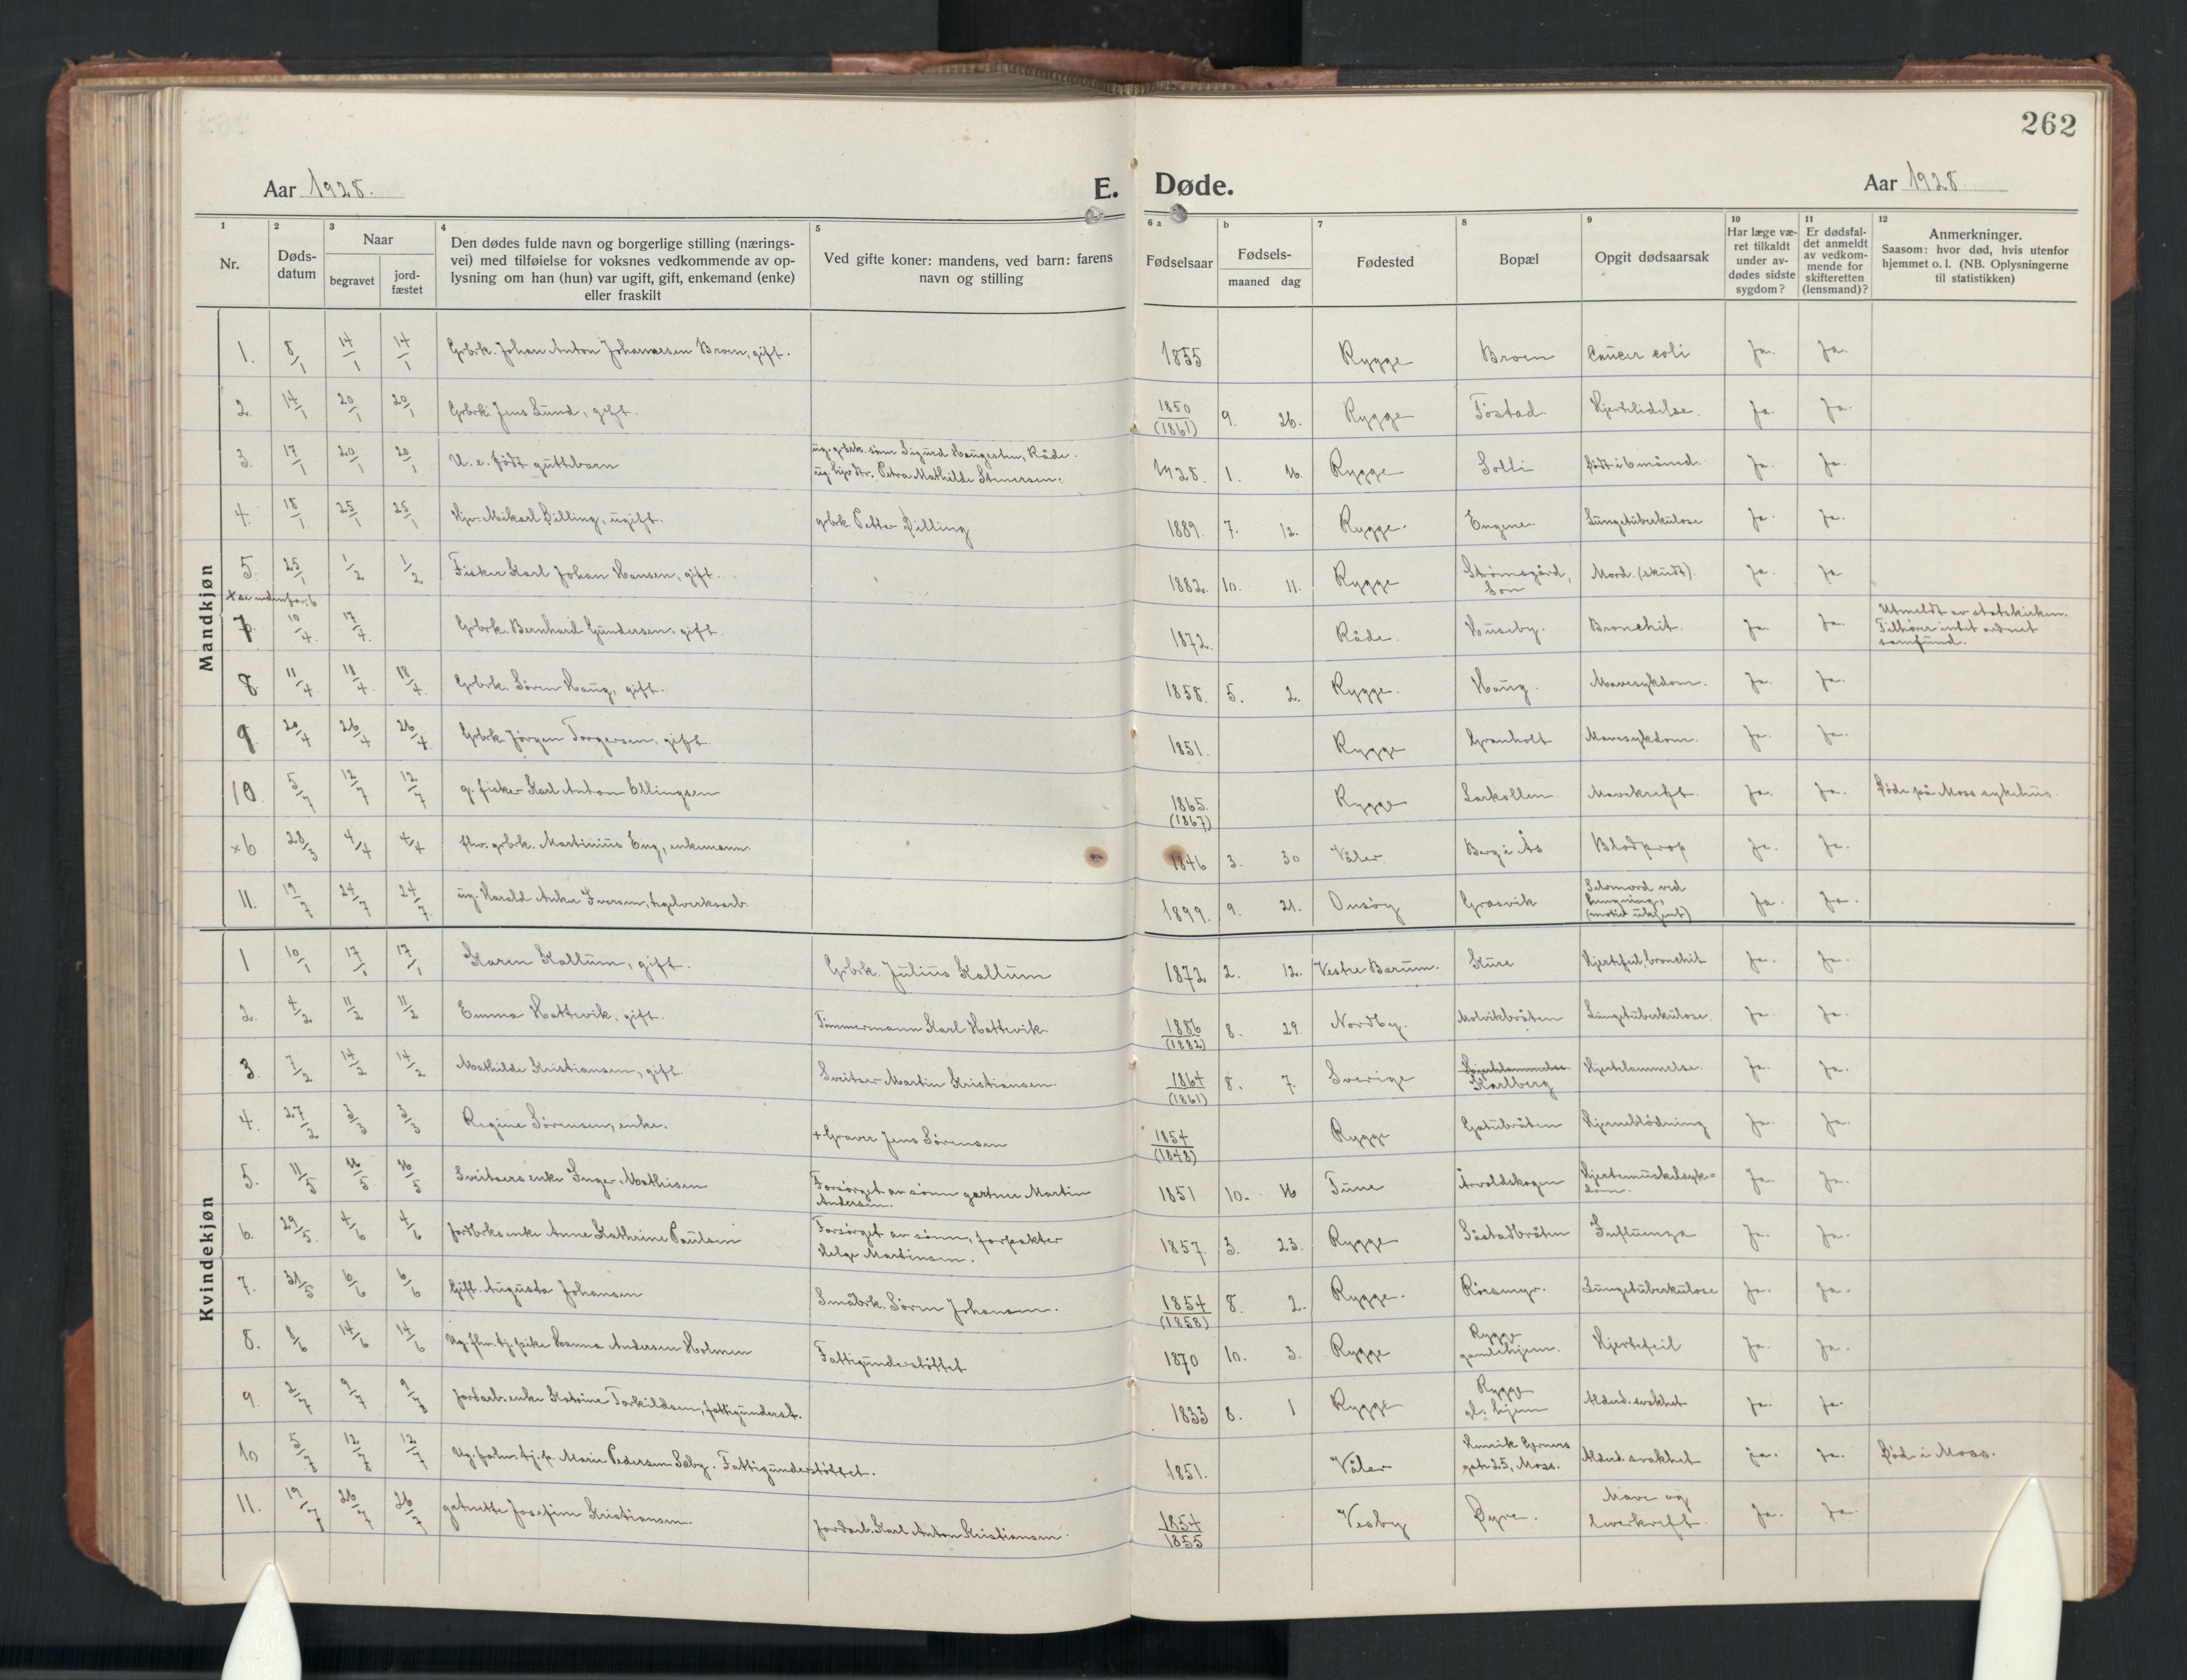 262
Aar 1928.
E. Døde.
Aar 1928
1 2 3 4 5 6 a b 7 8 9 10 11 12
Nr.
Døds-
datum
Naar
begravet
jord-
fæstet
Den dødes fulde navn og borgerlige stilling (nærings-
vei) med tilføielse for voksnes vedkommende av op-
lysning om han (hun) var ugift, gift, enkemand (enke)
eller fraskilt
Ved gifte koner: mandens, ved barn: farens
navn og stilling
Fødselsaar
Fødsels-
maaned dag
Fødested
Bopæl
Opgit dødsaarsak
Har læge væ-
ret tilkaldt
under av-
dødes sidste
sygdom?
Er dødsfal-
det anmeldt
av vedkom-
mende for
skifteretten
(lensmand)?
Anmerkninger.
Saasom: hvor død, hvis utenfor
hjemmet o. l. (NB. Oplysningerne
til statistikken)
Mandkjøn
1. 8/1 14/1 14/1 Grbrk. Johan Anton Johannesen Broen, gift. 1855 Rygge Broen Cancer coli Ja. Ja.
2. 14/1 20/1 20/1 Grbrk. Jens Lund, gift. 1850 (1861) 9. 26. Rygge Tostad. Hjertelidelse. Ja. Ja.
3. 17/1 20/1 20/1 U. e. født guttebarn ug. grbrk. sønn Sigurd Haugesten, Råde.
ug. hjv. dtr. Petra Mathilde Stenersen. 1928. 1. 16. Rygge Solli født i 6 måned. Ja. Ja.
4. 18/1 25/1 25/1 Hjv. Mikael Dilling, ugift. grbrk. Petter Dilling 1889. 7. 12. Rygge. Engene. Lungetuberkulose Ja. Ja.
5. 25/1 1/2 1/2 Fisker Karl Johan Hansen, gift. 1882. 10. 11. Rygge Strømsgård,
Son Mord. (skudt). Ja. Ja
x se nedenfor: 6
7. 10/4. 17/4. Grbrk. Bernhard Gundersen, gift. 1872. Råde. Huseby. Bronchit. Ja. Ja. Utmeldt av statskirken.
Tilhører intet ordnet
samfund.
8. 11/4. 18/4. 18/4. Grbrk. Søren Haug, gift. 1858. 5. 2. Rygge. Haug. Mavesykdom. Ja. Ja.
9. 20/4 26/4 26/4. Grbrk. Jørgen Torgersen, gift. 1851. Rygge Granholt Mavesykdom. Ja. Ja.
10. 5/7 12/7 12/7 g. fisker Karl Anton Ellingsen 1865. (1867) Rygge Larkollen. Mavekreft. Ja. Ja. Døde på Moss sykehus.
x6 28/3 4/4 4/4 fhv. grbrk. Martinius Eng, enkemann. 1846 3. 30 Våler Berg i Ås Blodprop Ja. Ja.
11. 19/7 24/7 24/7. ug. Harald Anker Iversen, teglverksarb. 1899. 9. 21. Onsøy Grasvik Selvmord ved
hengning,
(motiv ukjent) Ja. Ja.
Kvindekjøn
1 10/1 17/1 17/1 Karen Kallum, gift. Grbrk. Julius Kallum 1872 2. 12. Vestre Bærum. Kure Hjertefeil, bronchit Ja. Ja.
2. 4/2 11/2 11/2 Emma Hattevik, gift. Tømmermann Karl Hattevik. 1886 (1882) 8. 29. Nordby. Molvikbråten Lungetuberkulose. Ja. Ja.
3. 7/2 14/2 14/2 Mathilde Kristiansen, gift Sveitser Martin Kristiansen. 1864 (1861) 8. 7. Sverige Hjertelammelse
Karlberg Hjertelammelse. Ja. Ja.
4. 27/2 3/3 3/3 Regine Sørensen, enke. + Graver Jens Sørensen 1854 (1848) Rygge Gatubråten Hjerneblødning Ja. Ja.
5. 11/5 16/5 16/5 Sveitsers enke Inger Mathisen Forsørget av sønn gartner Martin
Andersen. 1851 10. 16 Tune Årvoldskogen Hjertemuskelsyk-
dom. Ja. Ja.
6. 29/5. 4/6 4/6 Jordbrks enke Anne Kathrine Paulsen Forsørget av sønn, forpakter
Helge Martinsen. 1857. 3. 23. Rygge Såstadbråten Influenza Ja. Ja.
7. 31/5 6/6 6/6 Gift. Augusta Johansen Småbrk. Søren Johansen. 1854 (1858) 8. 2. Rygge. Roesmyr. Lungetuberkulose Ja. Ja.
8. 8/6 14/6 14/6 Ug. fhv. tj. pike Hanna Andersen Holmen Fattigunderstøttet 1870 10. 3. Rygge Rygge
gamlehjem. Hjertefeil Ja. Ja.
9. 2/7 9/7 9/7 Jordarb. enke Katrine Torkildsen, fattigunderst. 1833 8. 1 Rygge Rygge
gl. hjem Alderd. svakhet Ja. Ja.
10 5/7 12/7 12/7 Ug. forhv. tj. p. Marie Pedersen Sæby. Fattigunderstøttet. 1851. Våler Henrik Gerners
gate 25, Moss. Alderd. svakhet Ja. Ja. Død i Moss.
11. 19/7 26/7 26/7 gatuette Josefine Kristiansen. Jordarb. Karl Anton Kristiansen. 1854 1855 Vesby Øyre. Mave og
leverkreft. Ja. Ja.